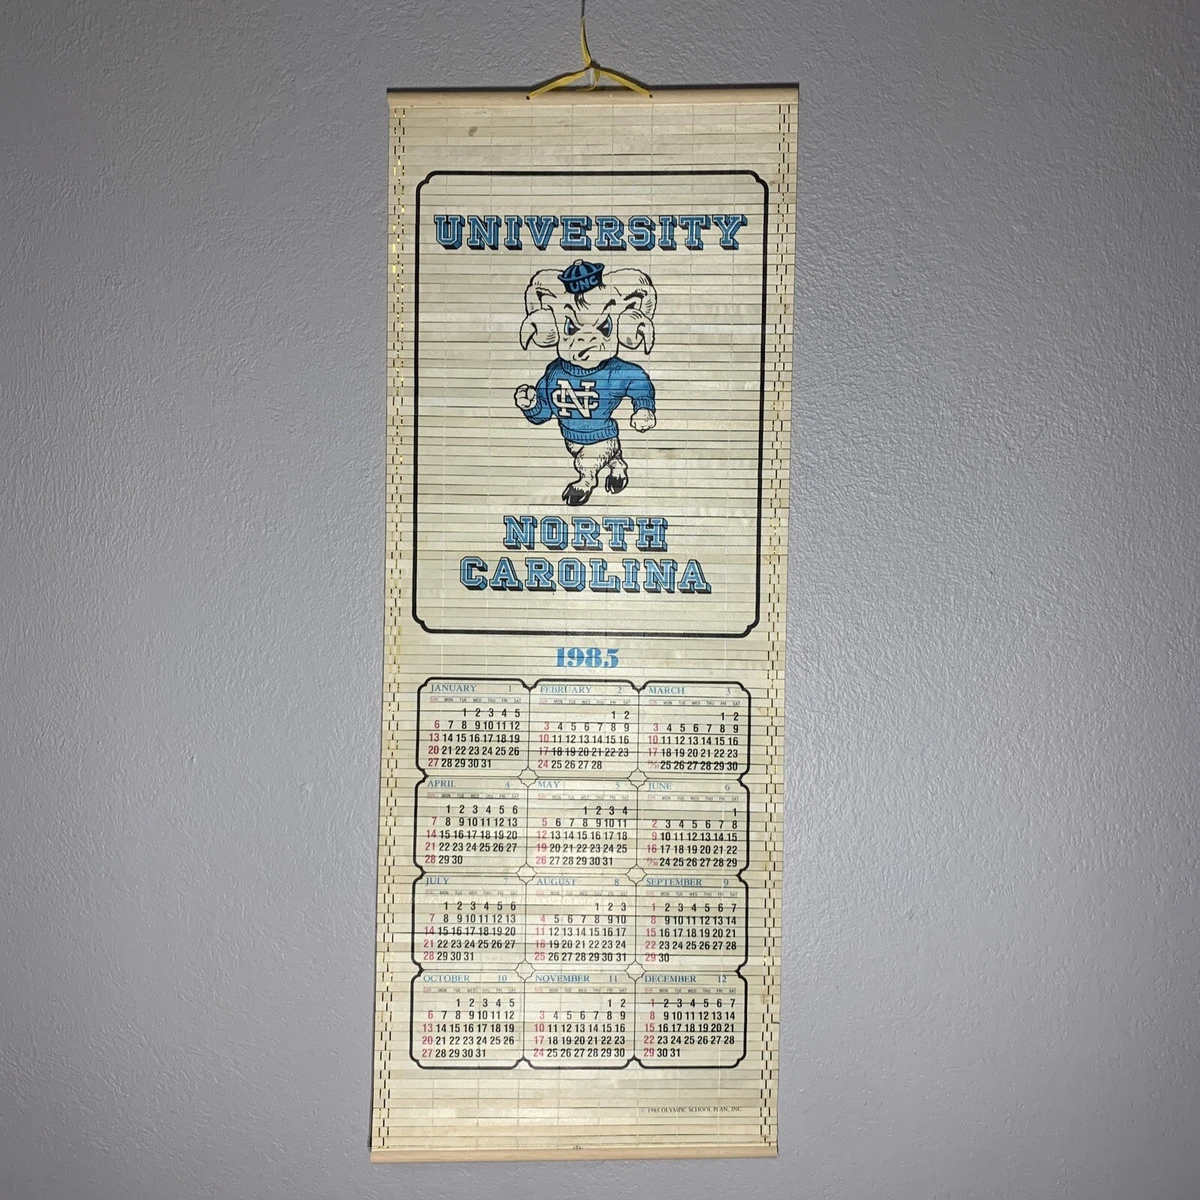 UNIVERSITY
UNC
NC
NORTH
CAROLINA
1985
JANUARY 1 FEBRUARY 2 MARCH 3
SUN MON TUE WED THU FRI SAT SUN MON TUE WED THU FRI SAT SUN MON TUE WED THU FRI SAT
1 2 3 4 5 1 2 1 2
6 7 8 9 10 11 12 3 4 5 6 7 8 9 3 4 5 6 7 8 9
13 14 15 16 17 18 19 10 11 12 13 14 15 16 10 11 12 13 14 15 16
20 21 22 23 24 25 26 17 18 19 20 21 22 23 17 18 19 20 21 22 23
27 28 29 30 31 24 25 26 27 28 24/31 25 26 27 28 29 30
APRIL 4 MAY 5 JUNE 6
SUN MON TUE WED THU FRI SAT SUN MON TUE WED THU FRI SAT SUN MON TUE WED THU FRI SAT
1 2 3 4 5 6 1 2 3 4 1
7 8 9 10 11 12 13 5 6 7 8 9 10 11 2 3 4 5 6 7 8
14 15 16 17 18 19 20 12 13 14 15 16 17 18 9 10 11 12 13 14 15
21 22 23 24 25 26 27 19 20 21 22 23 24 25 16 17 18 19 20 21 22
28 29 30 26 27 28 29 30 31 23/30 24 25 26 27 28 29
JULY 7 AUGUST 8 SEPTEMBER 9
SUN MON TUE WED THU FRI SAT SUN MON TUE WED THU FRI SAT SUN MON TUE WED THU FRI SAT
1 2 3 4 5 6 1 2 3 1 2 3 4 5 6 7
7 8 9 10 11 12 13 4 5 6 7 8 9 10 8 9 10 11 12 13 14
14 15 16 17 18 19 20 11 12 13 14 15 16 17 15 16 17 18 19 20 21
21 22 23 24 25 26 27 18 19 20 21 22 23 24 22 23 24 25 26 27 28
28 29 30 31 25 26 27 28 29 30 31 29 30
OCTOBER 10 NOVEMBER 11 DECEMBER 12
SUN MON TUE WED THU FRI SAT SUN MON TUE WED THU FRI SAT SUN MON TUE WED THU FRI SAT
1 2 3 4 5 1 2 1 2 3 4 5 6 7
6 7 8 9 10 11 12 3 4 5 6 7 8 9 8 9 10 11 12 13 14
13 14 15 16 17 18 19 10 11 12 13 14 15 16 15 16 17 18 19 20 21
20 21 22 23 24 25 26 17 18 19 20 21 22 23 22 23 24 25 26 27 28
27 28 29 30 31 24 25 26 27 28 29 30 29 30 31
© 1985 OLYMPIC SCHOOL PLAN, INC.